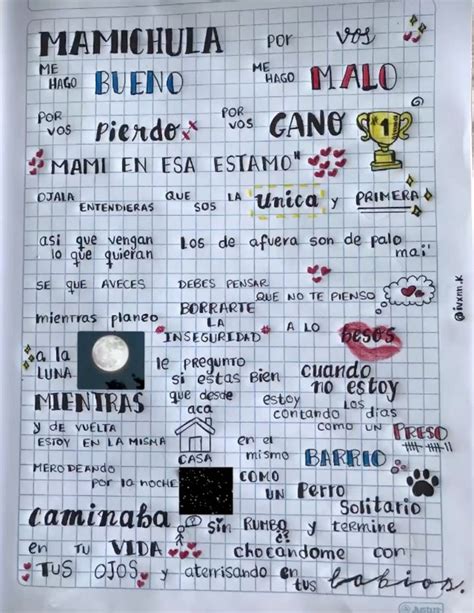 MAMICHULA por vos
ME HAGO BUENO ME HAGO MALO
POR VOS Pierdo xx POR VOS GANO #1
MAMI EN ESA ESTAMO"
OJALA ENTENDIERAS QUE SOS LA Unica y PRIMERA
asi que vengan lo que quieran Los de afuera son de palo mai'
SE QUE AVECES DEBES PENSAR QUE NO TE PIENSO
mientras planeo BORRARTE LA INSEGURIDAD A LO besos
a la LUNA le pregunto si estas Bien cuando no estoy
MIENTRAS que desde aca estoy contando Los dias como un PRESO
Y DE VUELTA ESTOY EN LA MISMA CASA en el mismo BARRIO
MERODEANDO por la NOCHE COMO UN Perro Solitario
caminaba sin RUMBO y termine
en TU VIDA chocandome con
TUS OJOS y aterrisando en tus labios.
@ivxnn.k